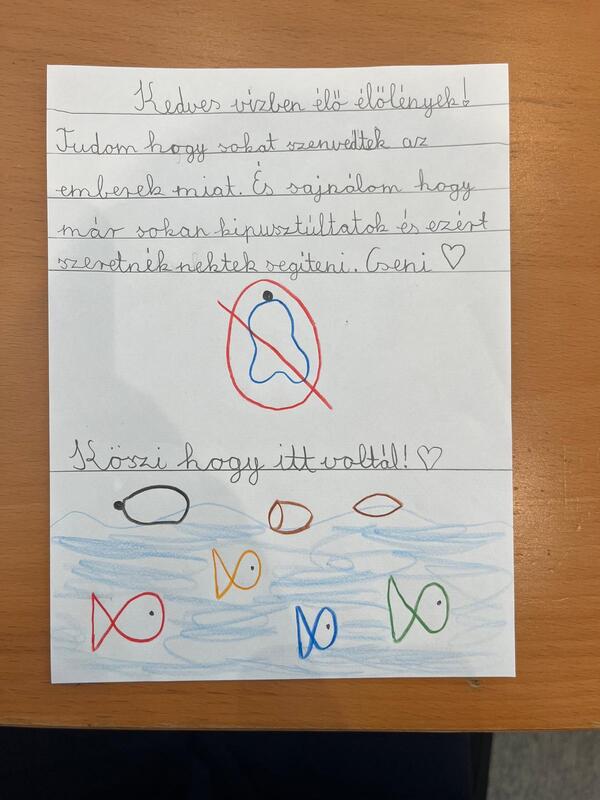 Kedves vizben élő élőlények!
Tudom hogy sokat szenvedtek az
emberek miat. És sajnálom hogy
már sokan kipusztúltatok és ezért
szeretnék nektek segíteni. Cseni ♡
Köszi hogy itt voltál! ♡